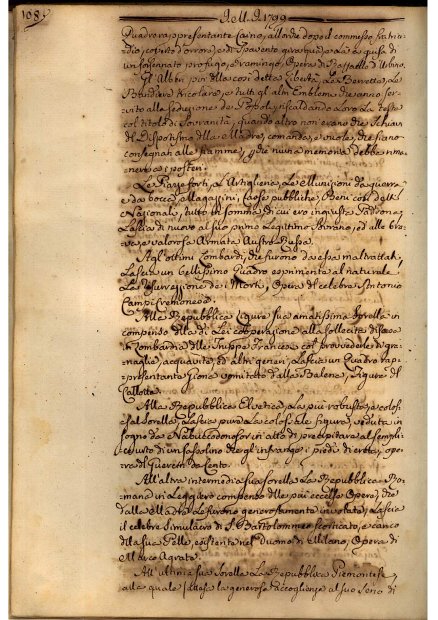 108
A. M. D. 1799
Quadro rappresentante Caino, allorche dopo il commesso fratrici-
dio, coperto d'orrore, e di spavento girovago, e a guisa di
un forsennato profugo, e ramingo, Opera di Raffaello d'Urbino.
Gli Alberi pur della così detta Libertà, Le Berrette, Le
Bandiere tricolori, e tutti gl'altri Emblemi che anno ser-
vito alla seduzione dei Popoli, riscaldando Loro La testa
col titolo di Sovranità, quando altro non erano che Schiavi
del Dispotismo della Madre, comanda, e vuole, che siano
consegnati alle fiamme, che niuna memoria debba rima-
nere ai posteri.
Le Piazze forti, Le Artiglierie, Le Munizioni da guerra
e da bocca, Magazzini, Casse pubbliche, Beni così detti
Nazionali, tutto in somma, di cui era ingiusta Padrona
Lascia di nuovo al suo primo Legitimo Sovrano, ed alle bra-
ve, e valorosa Armata Austro Russa.
Agl'ottimi Lombardi, che furono da essa maltrattati,
Lascia un bellissimo Quadro esprimente al naturale
La Risurrezione de' Morti, Opera del celebre Antonio
Campi Cremonese.
Alla Repubblica Ligure sua amatissima Sorella in
compenso della di Lei cooperazione alla sollecita discesa
in Lombardia delle Truppe Francesi col provvederle di gra-
naglie, acquavite, ed altri generi, Lascia un Quadro rap-
presentante Giona vomitato dalla Balena, Figure del
Callotta.
Alla Repubblica Elvetica, La più robusta, e colos-
sal Sorella, Lascia pure La colossale figura, veduta in
sogno da Nabuccodonosor in atto di precipitare al sempli-
ce urto di un sassolino che gl'infrange i piedi di creta, ope-
ra del Guercin da Cento.
All'altra intermedia sua Sorella La Repubblica Ro-
mana in Leggiero compenso delle più eccelse Opere, che
dalla Madre Le furono generosamente involate, Lascia
il celebre Simulacro di S. Bartolommeo scorticato, e carico
della sua Pelle, esistente nel Duomo di Milano, Opera di
Marco Agrate.
All'ultima sua Sorella La Repubblica Piemontese,
alla quale la generosa accoglienza al suo seno di